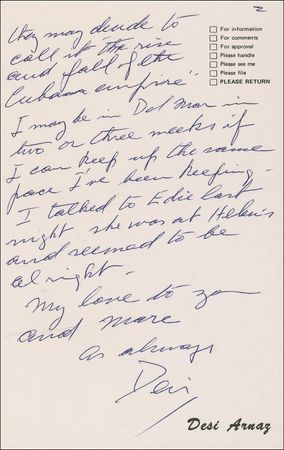 2
☐ For information
☐ For comments
☐ For approval
☐ Please handle
☐ Please see me
☐ Please file
☐ PLEASE RETURN
they may decide to
call it "the rise
and fall of the
Cubana empire"
I may be in Del Mar in
two or three weeks if
I can keep up the same
pace I've been keeping -
I talked to Edie last
night, she was at Helen's
and seemed to be
al right -
My love to you
and Marc
as always
Desi
Desi Arnaz